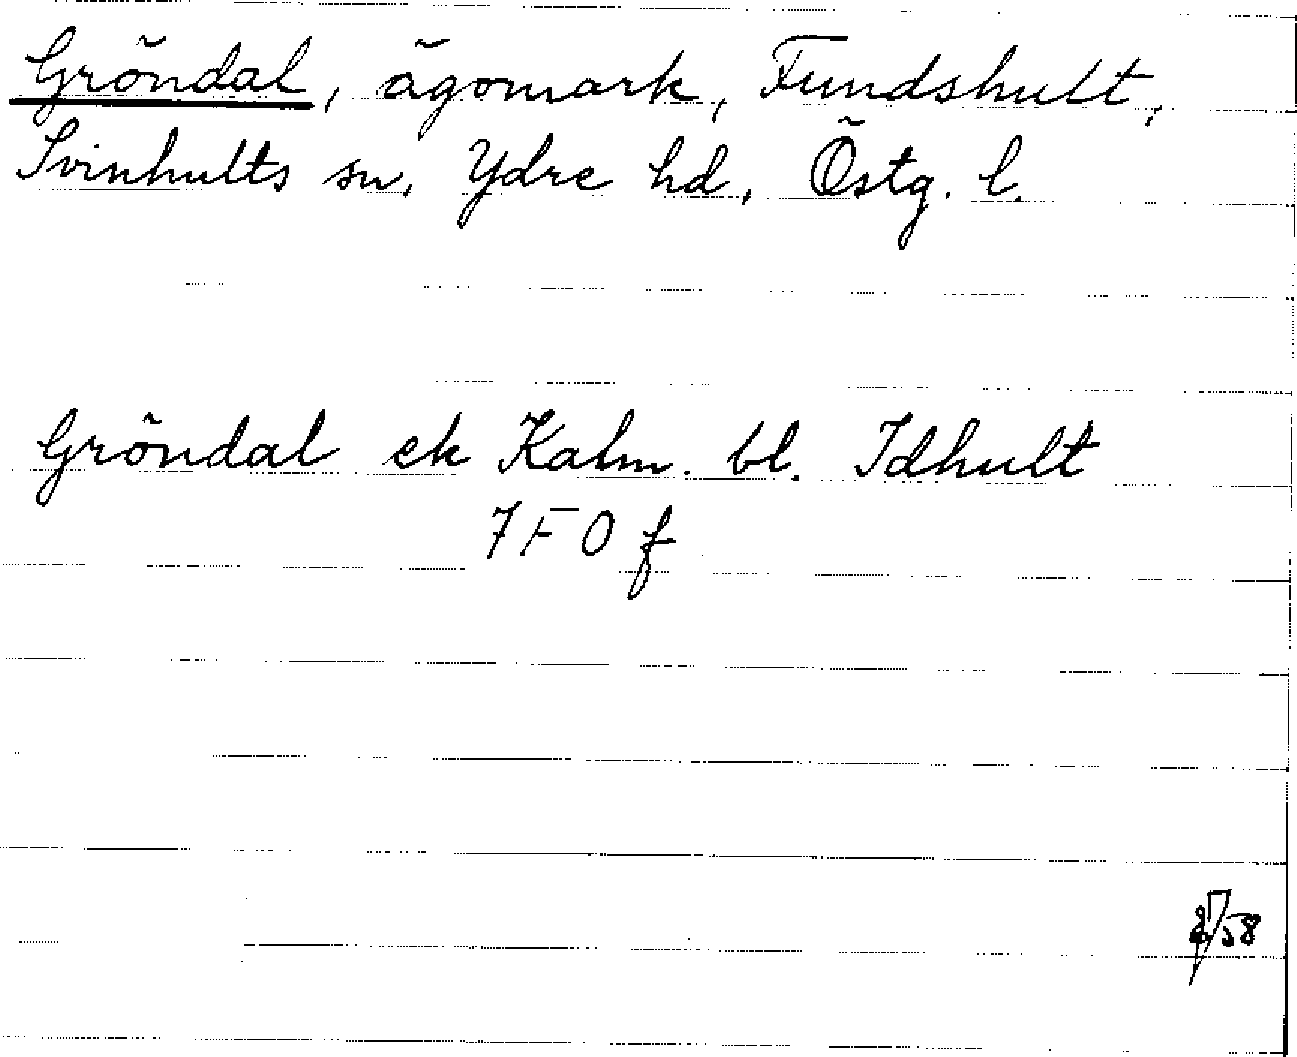 Gröndal, ägomark, Fundshult,
Svinhults sn, Ydre hd, Östg. l.
Gröndal ek Kalm. bl. Idhult
7F0f